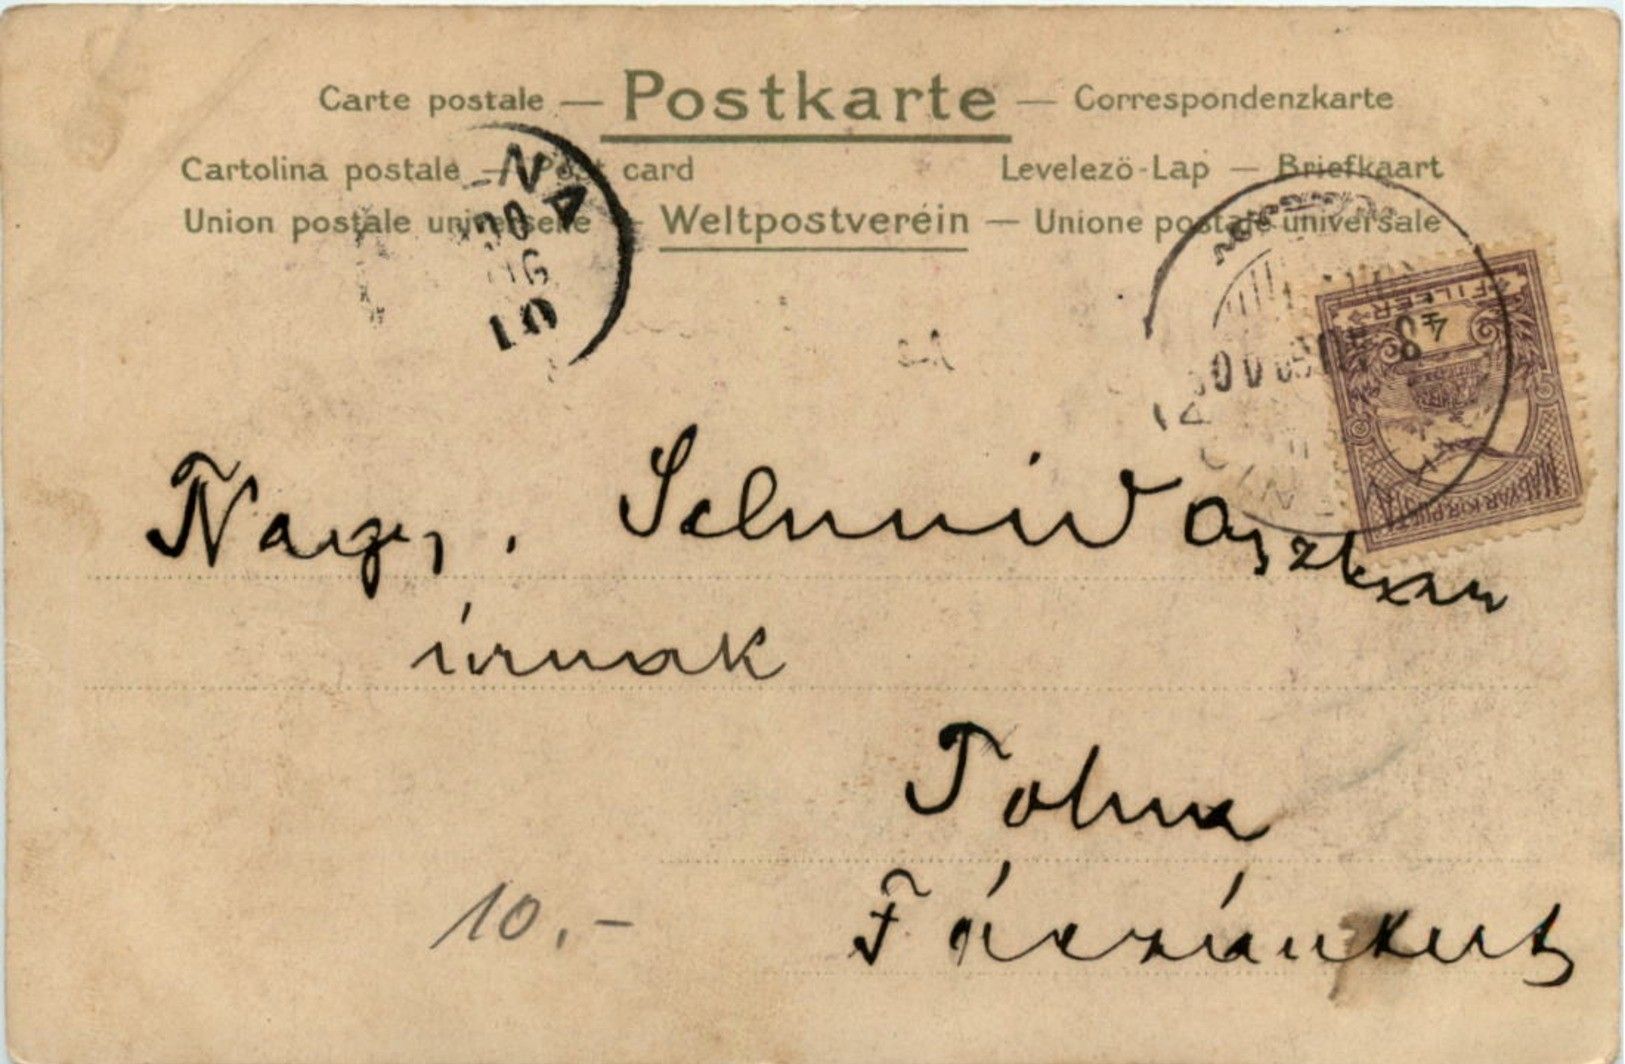 Carte postale — Postkarte — Correspondenzkarte
Cartolina postale — Post card Levelező-Lap — Briefkaart
Union postale universelle — Weltpostverein — Unione postale universale
NA
10
FILLER
MAGYAR KIR. POSTA
Nagys. Schmid
úrnak
Tolna
10.-